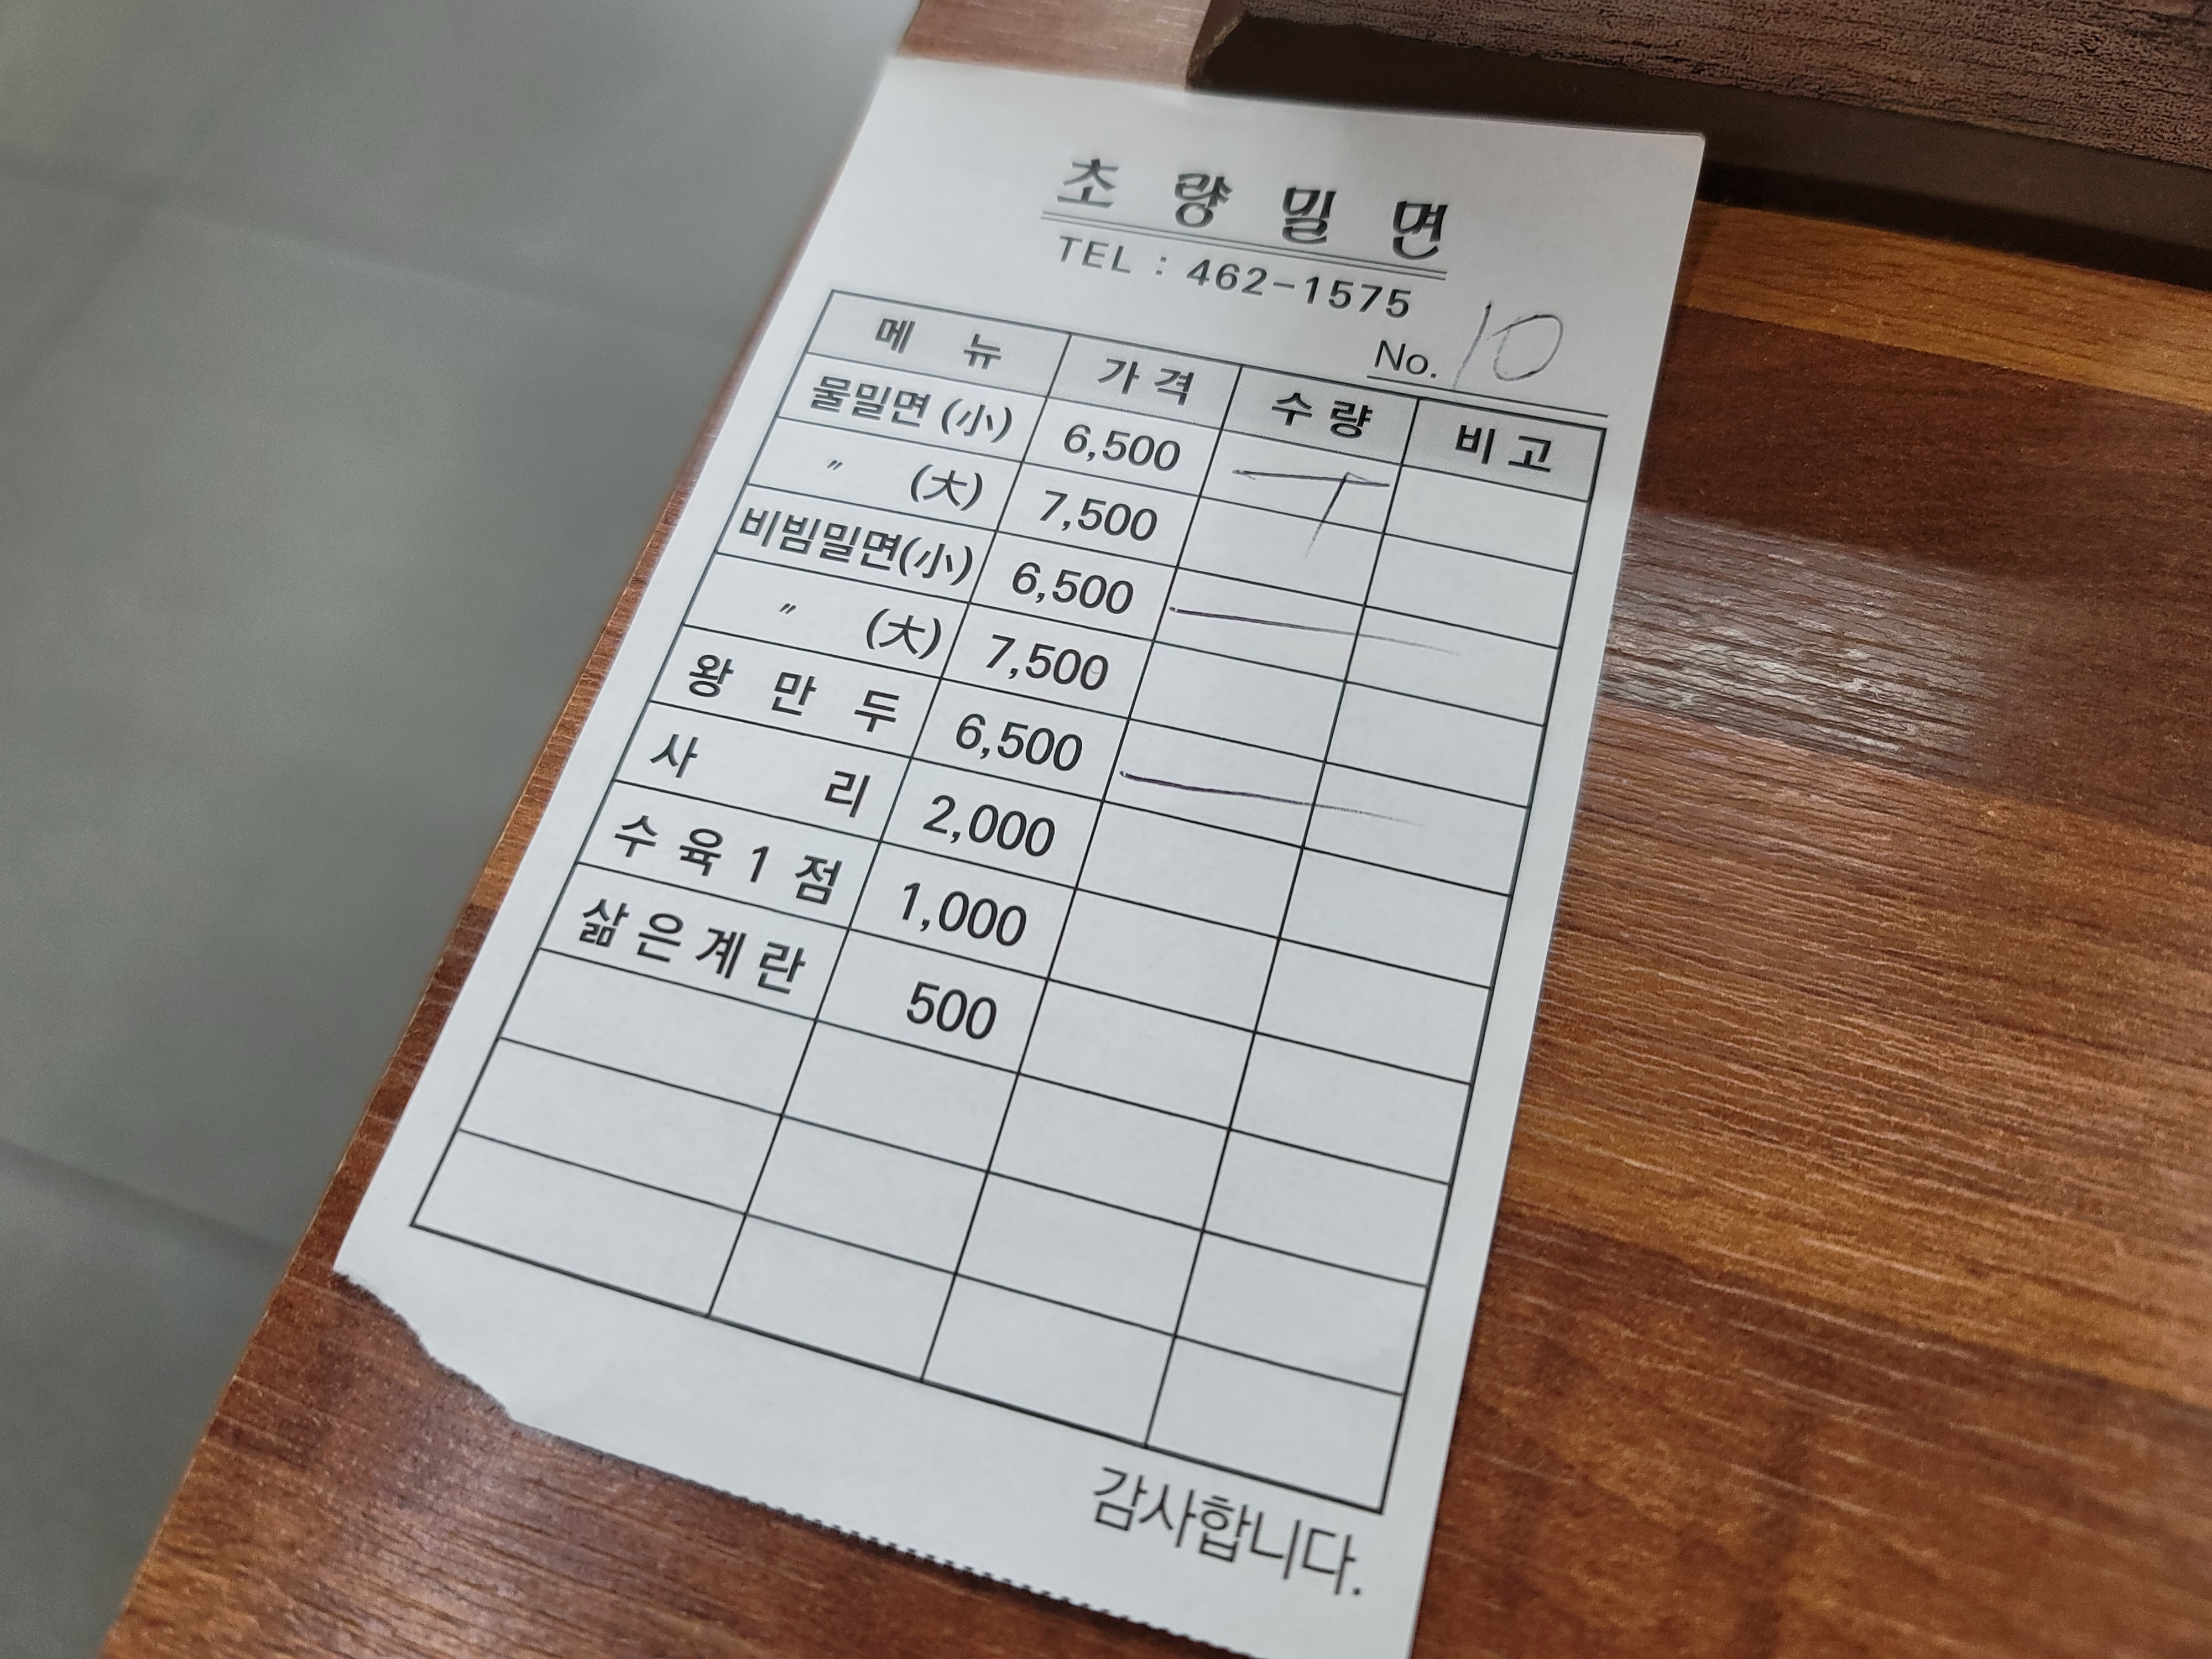 초량밀면
TEL : 462-1575
No. 10
메 뉴 가 격 수 량 비 고
물밀면 (小) 6,500 ㅜ
〃 (大) 7,500
비빔밀면(小) 6,500 一
〃 (大) 7,500
왕 만 두 6,500 一
사 리 2,000
수 육 1 점 1,000
삶 은 계 란 500
감사합니다.